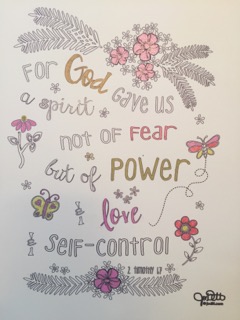 For God
a spirit gave us
not of fear
but of POWER
& love
& self-control
2 timothy 1:7